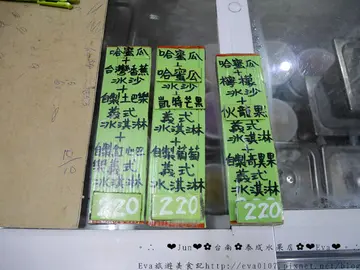 哈蜜瓜
+
台灣香蕉
冰沙
+
自製土芭樂
義式
冰淇淋
+
自製紅心芭
義式
冰淇淋
220
哈蜜瓜
+
哈蜜瓜
冰沙
+
凱特芒果
義式
冰淇淋
+
自製葡萄
義式
冰淇淋
220
哈蜜瓜
+
檸檬
冰沙
+
火龍果
義式
冰淇淋
+
自製奇異果
義式
冰淇淋
220
❤Jun❤✿台南✿泰成水果店✿❤Eva❤
Eva旅遊美食記http://eva0712.pixnet.net/blog